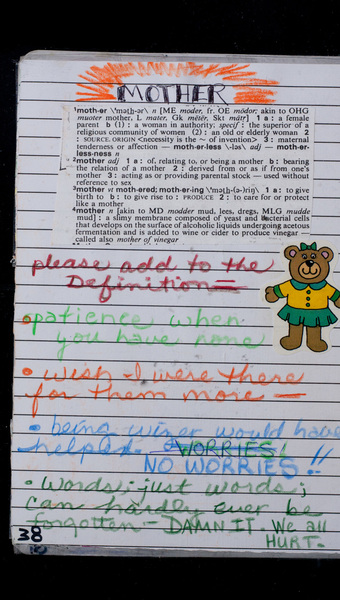 MOTHER
¹moth·er \'məth-ər\ n [ME moder, fr. OE mōdor; akin to OHG
muoter mother, L mater, Gk mētēr, Skt mātṛ] 1 a : a female
parent b (1) : a woman in authority; specif : the superior of a
religious community of women (2) : an old or elderly woman 2
: SOURCE, ORIGIN <necessity is the ~ of invention> 3 : maternal
tenderness or affection — moth·er·less \-ləs\ adj — moth·er-
less·ness n
²mother adj 1 a : of, relating to, or being a mother b : bearing
the relation of a mother 2 : derived from or as if from one's
mother 3 : acting as or providing parental stock — used without
reference to sex
³mother vt moth·ered; moth·er·ing \'məth-(ə-)riŋ\ 1 a : to give
birth to b : to give rise to : PRODUCE 2 : to care for or protect
like a mother
⁴mother n [akin to MD modder mud, lees, dregs, MLG mudde
mud] : a slimy membrane composed of yeast and bacterial cells
that develops on the surface of alcoholic liquids undergoing acetous
fermentation and is added to wine or cider to produce vinegar —
called also mother of vinegar
please add to the
Definition—
• patience when
you have none
• wish I were there
for them more —
• being wiser would have
helped. WORRIES!
NO WORRIES !!
• Words; just words;
can hardly ever be
forgotten — DAMN IT. We all
HURT.
38